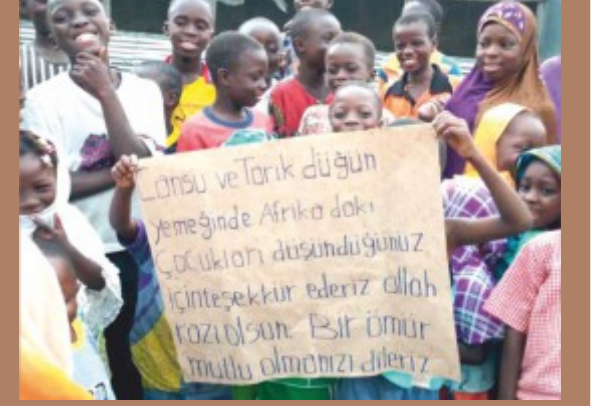 Cansu ve Tarık düğün
yemeğinde Afrika daki
Çocukları düşündüğünüz
içinteşekkür ederiz allah
razıolsun. Bir ömür
mutlu olmanızı dileriz